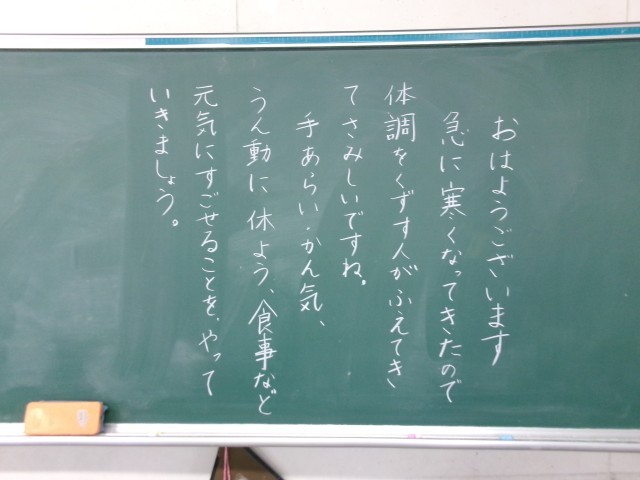 おはようございます
急に寒くなってきたので
体調をくずす人がふえてき
てさみしいですね。
手あらい・かん気、
うん動に休よう、食事など
元気にすごせることを、やって
いきましょう。